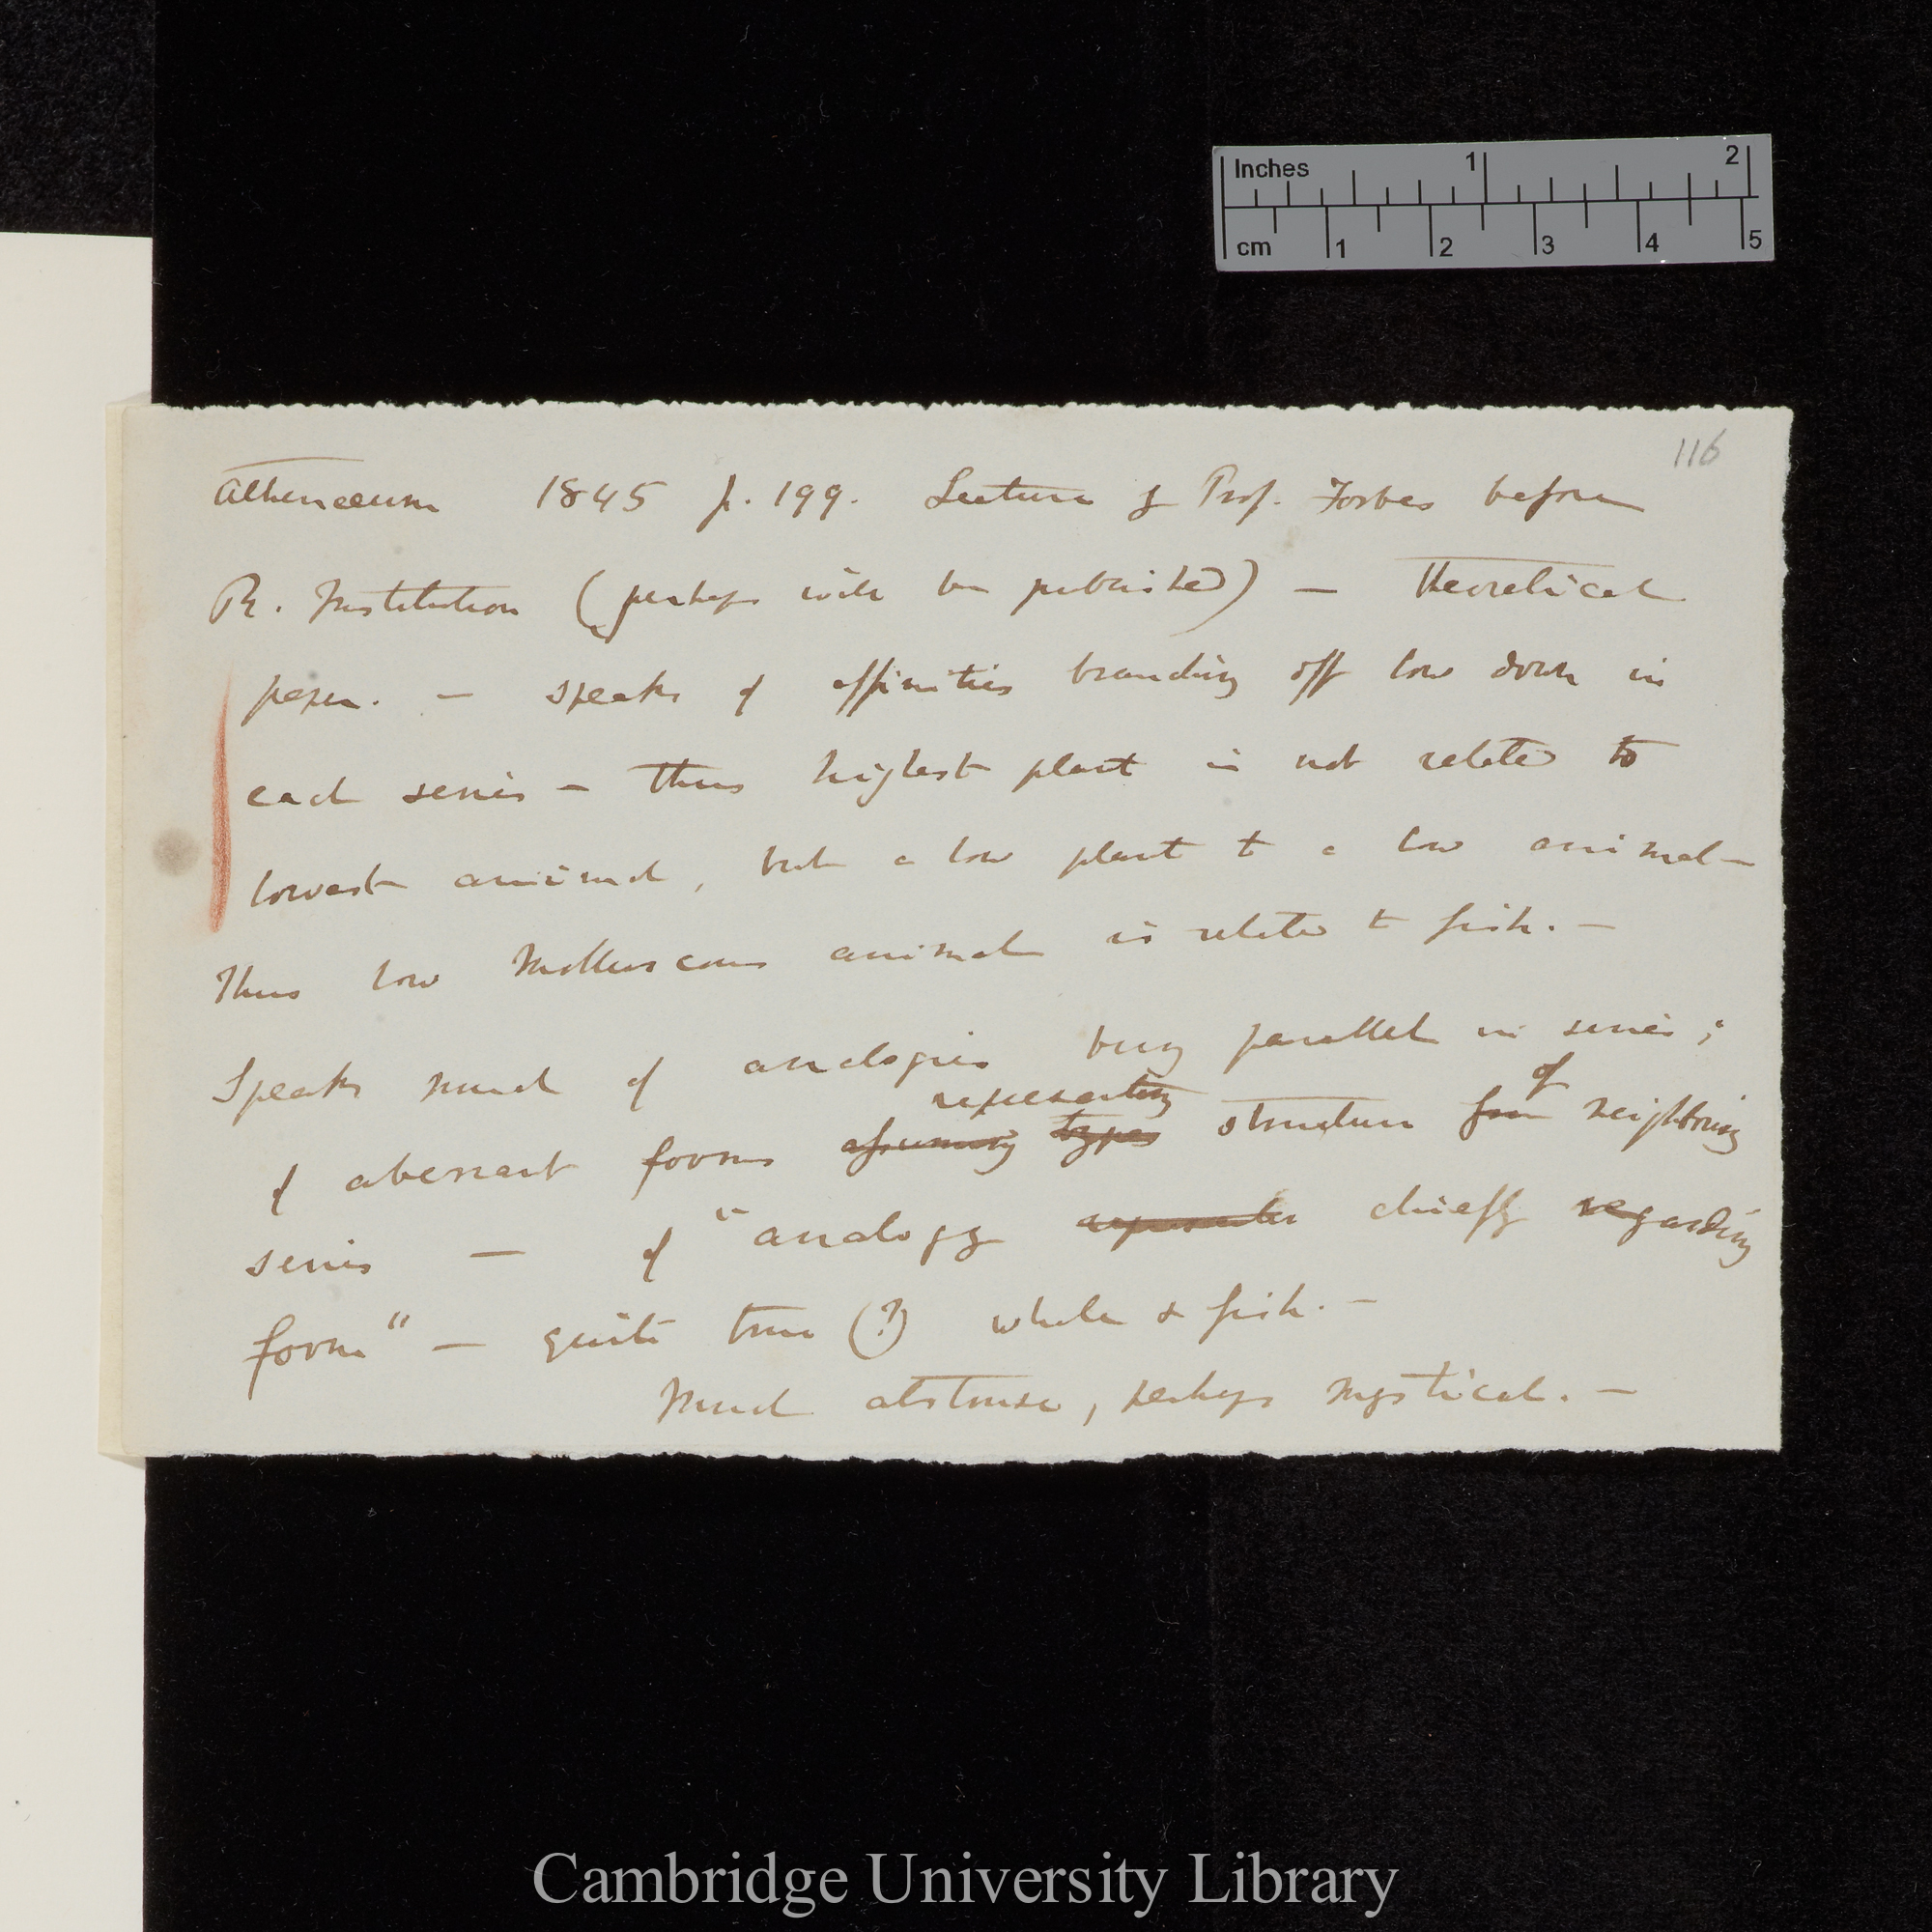 Inches 1 2
cm 1 2 3 4 5
116
Athenæum 1845 p. 199. Lecture of Prof. Forbes before
R. Institution (perhaps will be published) — theoretical
paper. — speaks of affinities branching off low down in
each series — thus highest plant is not related to
lowest animal, but a low plant to a low animal —
Thus low Molluscous animal is related to fish. —
Speaks much of analogies being parallel in series;
representing of
of aberrant forms assuming types structure from neighbouring
series — of "analogy chiefly regarding
form" — quite true (?) whale & fish. —
Much abstruse, perhaps mystical. —
Cambridge University Library